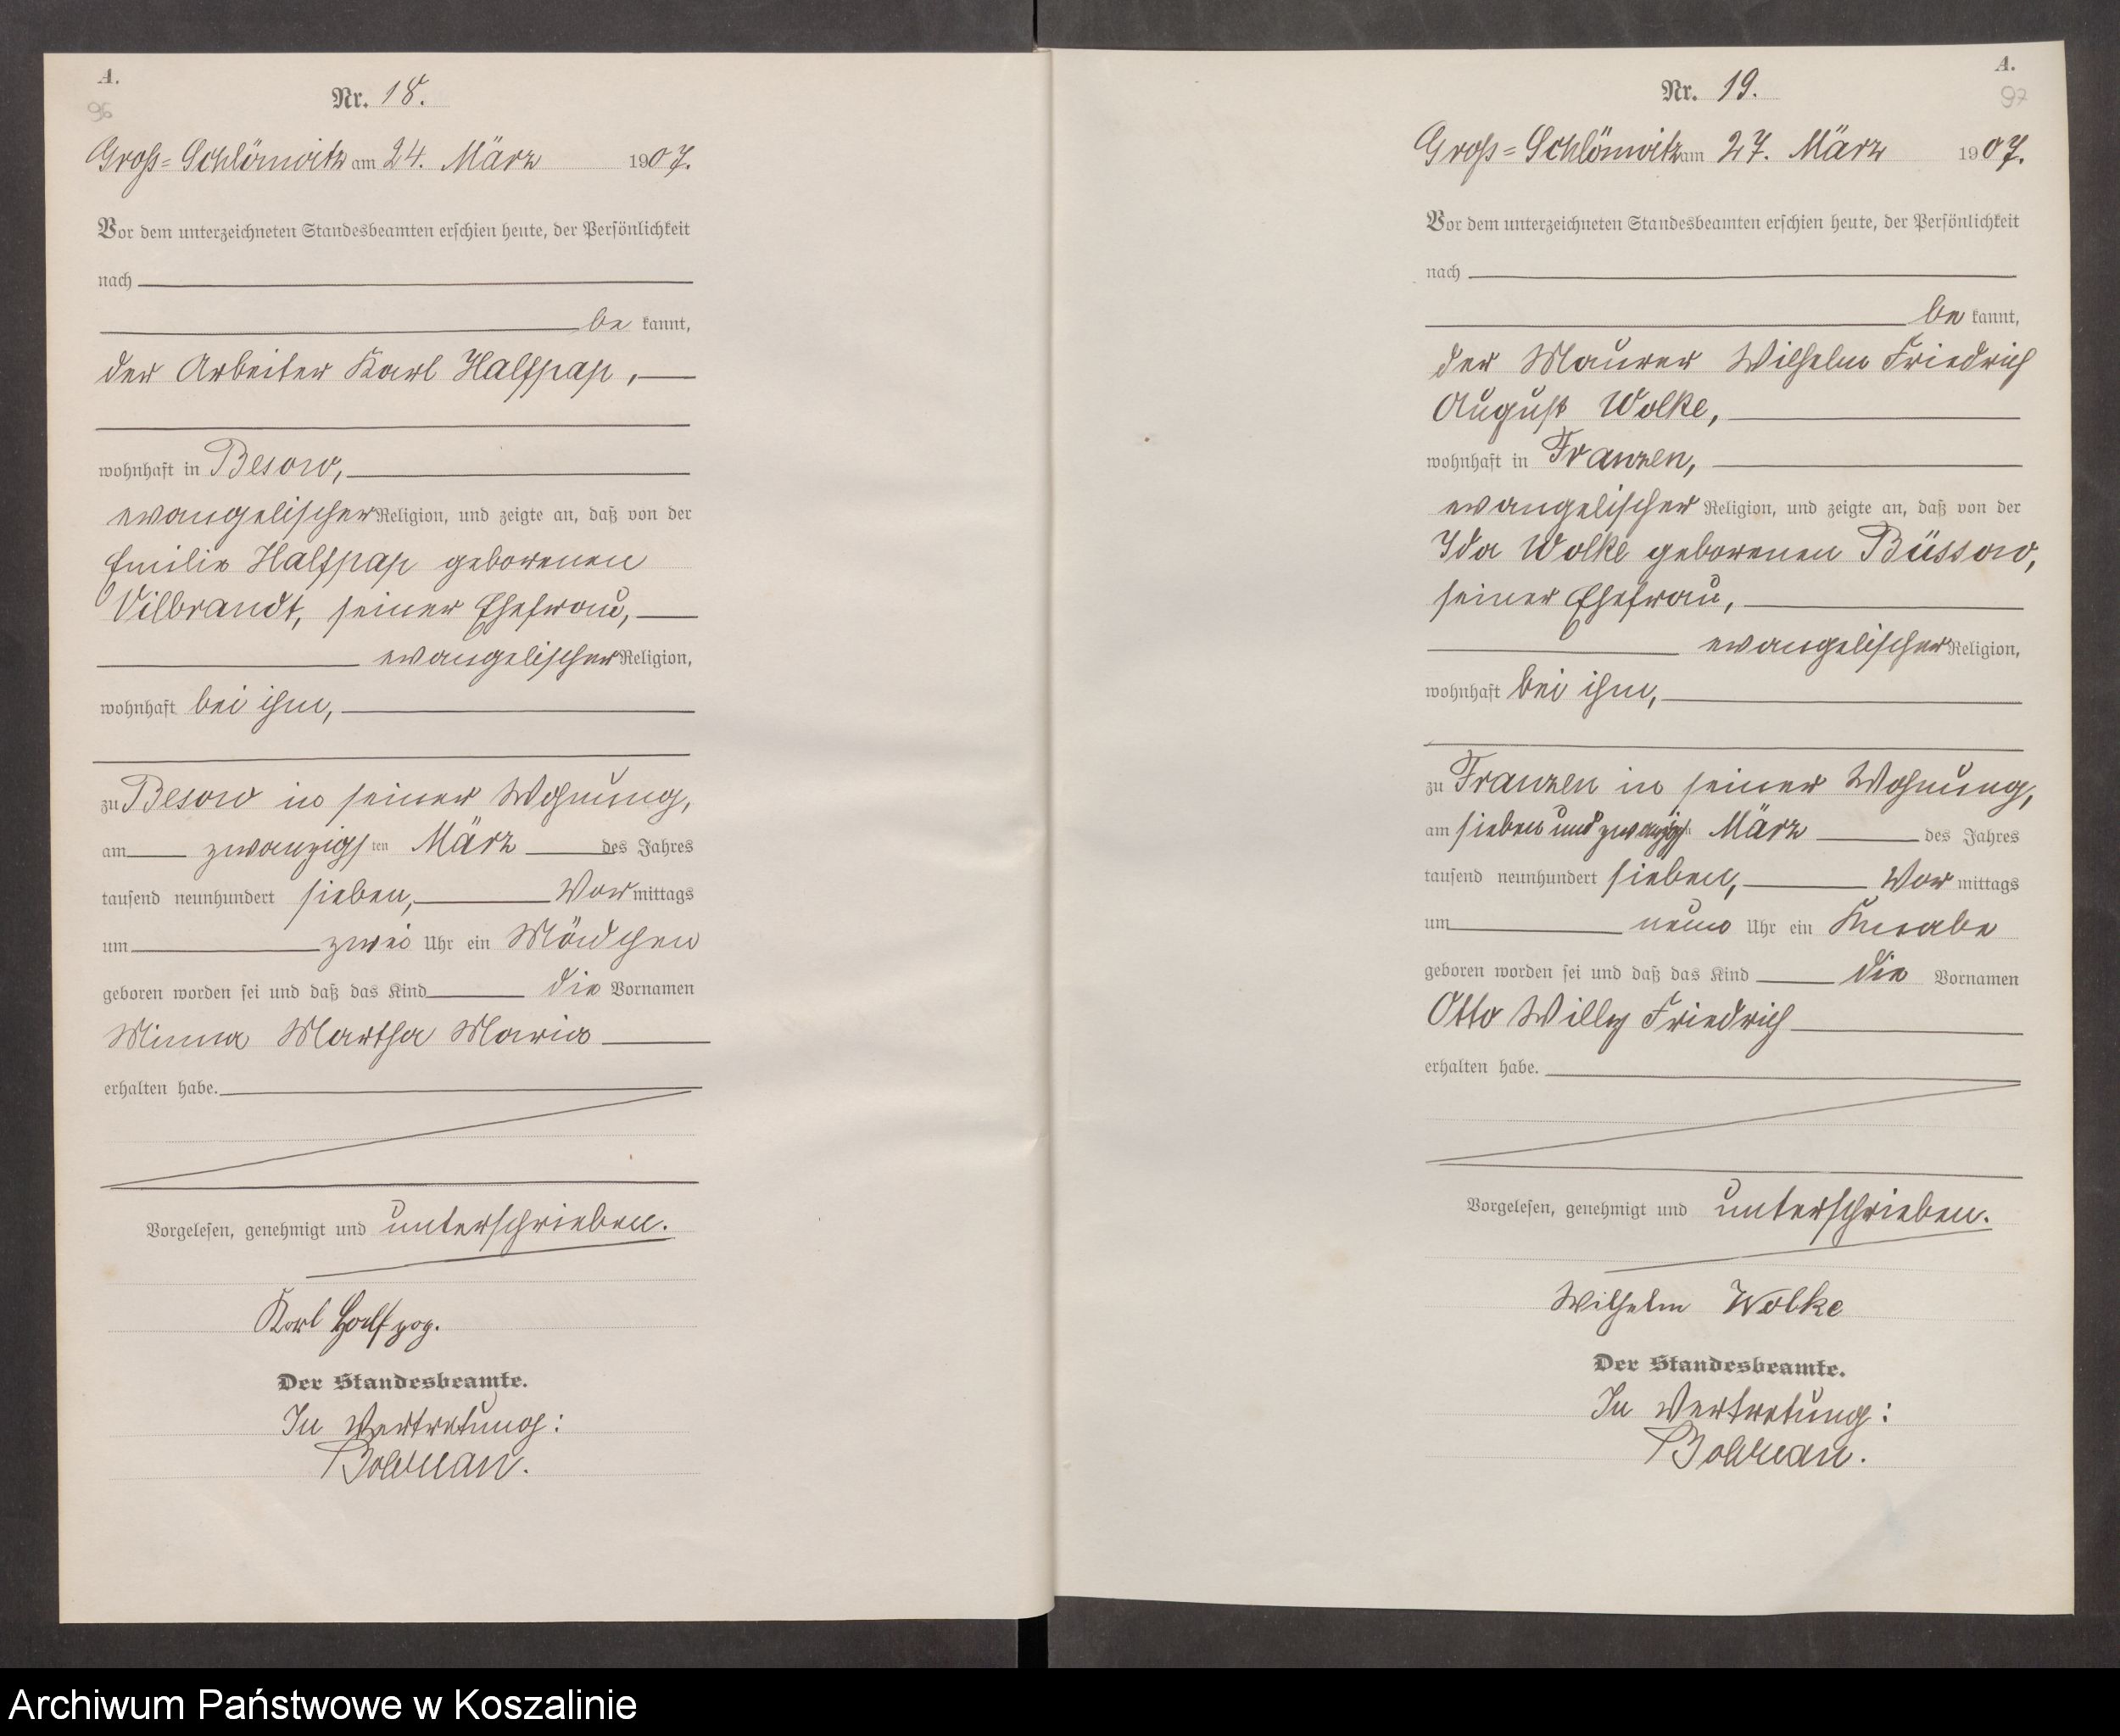 A.
96
Nr. 18.
Groß=Schlönwitz am 24. März 1907.
Vor dem unterzeichneten Standesbeamten erschien heute, der Persönlichkeit
nach
be kannt,
der Arbeiter Karl Halfpap,
wohnhaft in Besow,
evangelischer Religion, und zeigte an, daß von der
Emilie Halfpap geborenen
Vilbrandt, seiner Ehefrau,
evangelischer Religion,
wohnhaft bei ihm,
zu Besow in seiner Wohnung,
am zwanzigsten März des Jahres
tausend neunhundert sieben, Vor mittags
um zwei Uhr ein Mädchen
geboren worden sei und daß das Kind die Vornamen
Minna Martha Marie
erhalten habe.
Vorgelesen, genehmigt und unterschrieben.
Karl Halfpap.
Der Standesbeamte.
In Vertretung:
A.
97
Nr. 19.
Groß=Schlönwitz am 27. März 1907.
Vor dem unterzeichneten Standesbeamten erschien heute, der Persönlichkeit
nach
be kannt,
der Maurer Wilhelm Friedrich
August Wolke,
wohnhaft in Franzen,
evangelischer Religion, und zeigte an, daß von der
Ida Wolke geborenen Büssow,
seiner Ehefrau,
evangelischer Religion,
wohnhaft bei ihm,
zu Franzen in seiner Wohnung,
am siebenundzwanzigsten März des Jahres
tausend neunhundert sieben, Vor mittags
um neun Uhr ein Knabe
geboren worden sei und daß das Kind die Vornamen
Otto Willy Friedrich
erhalten habe.
Vorgelesen, genehmigt und unterschrieben.
Wilhelm Wolke
Der Standesbeamte.
In Vertretung:
Archiwum Państwowe w Koszalinie